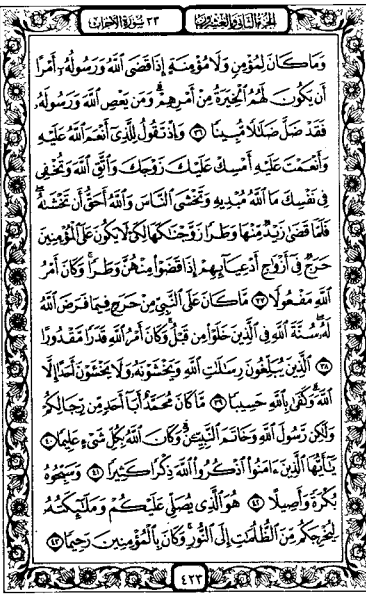 الجزء الثاني والعشرون
٣٣ سورة الأحزاب
وَمَا كَانَ لِمُؤْمِنٍ وَلَا مُؤْمِنَةٍ إِذَا قَضَى اللَّهُ وَرَسُولُهُ أَمْرًا
أَن يَكُونَ لَهُمُ الْخِيَرَةُ مِنْ أَمْرِهِمْ وَمَن يَعْصِ اللَّهَ وَرَسُولَهُ
فَقَدْ ضَلَّ ضَلَالًا مُّبِينًا ٣٦ وَإِذْ تَقُولُ لِلَّذِي أَنْعَمَ اللَّهُ عَلَيْهِ
وَأَنْعَمْتَ عَلَيْهِ أَمْسِكْ عَلَيْكَ زَوْجَكَ وَاتَّقِ اللَّهَ وَتُخْفِي
فِي نَفْسِكَ مَا اللَّهُ مُبْدِيهِ وَتَخْشَى النَّاسَ وَاللَّهُ أَحَقُّ أَن تَخْشَاهُ
فَلَمَّا قَضَى زَيْدٌ مِّنْهَا وَطَرًا زَوَّجْنَاكَهَا لِكَيْ لَا يَكُونَ عَلَى الْمُؤْمِنِينَ
حَرَجٌ فِي أَزْوَاجِ أَدْعِيَائِهِمْ إِذَا قَضَوْا مِنْهُنَّ وَطَرًا وَكَانَ أَمْرُ
اللَّهِ مَفْعُولًا ٣٧ مَّا كَانَ عَلَى النَّبِيِّ مِنْ حَرَجٍ فِيمَا فَرَضَ اللَّهُ
لَهُ سُنَّةَ اللَّهِ فِي الَّذِينَ خَلَوْا مِن قَبْلُ وَكَانَ أَمْرُ اللَّهِ قَدَرًا مَّقْدُورًا
٣٨ الَّذِينَ يُبَلِّغُونَ رِسَالَاتِ اللَّهِ وَيَخْشَوْنَهُ وَلَا يَخْشَوْنَ أَحَدًا إِلَّا
اللَّهَ وَكَفَى بِاللَّهِ حَسِيبًا ٣٩ مَّا كَانَ مُحَمَّدٌ أَبَا أَحَدٍ مِّن رِّجَالِكُمْ
وَلَٰكِن رَّسُولَ اللَّهِ وَخَاتَمَ النَّبِيِّينَ وَكَانَ اللَّهُ بِكُلِّ شَيْءٍ عَلِيمًا ٤٠
يَا أَيُّهَا الَّذِينَ ءَامَنُوا اذْكُرُوا اللَّهَ ذِكْرًا كَثِيرًا ٤١ وَسَبِّحُوهُ
بُكْرَةً وَأَصِيلًا ٤٢ هُوَ الَّذِي يُصَلِّي عَلَيْكُمْ وَمَلَائِكَتُهُ
لِيُخْرِجَكُم مِّنَ الظُّلُمَاتِ إِلَى النُّورِ وَكَانَ بِالْمُؤْمِنِينَ رَحِيمًا ٤٣
٤٢٣